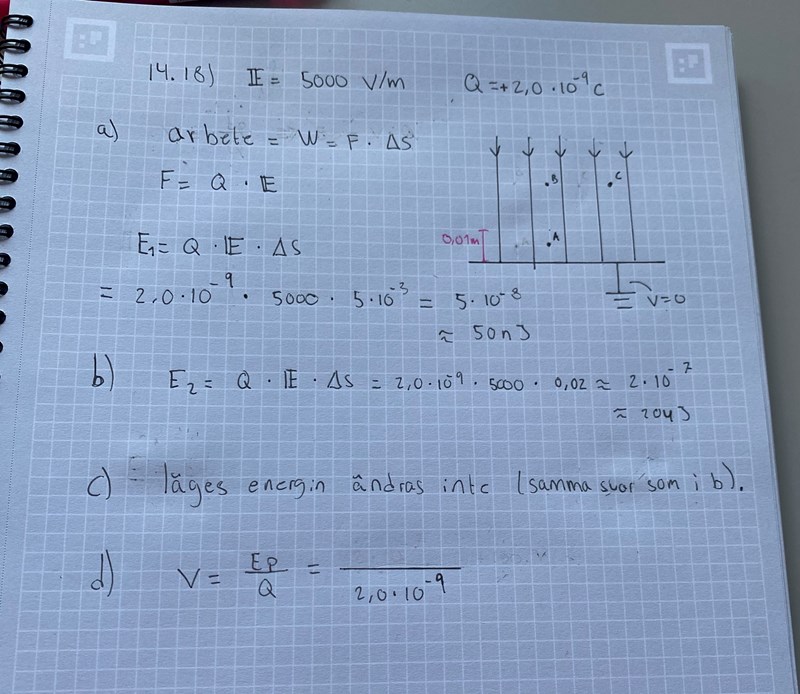 14.18) E = 5000 V/m Q=+2,0·10⁻⁹C
a) arbete = W = F · ΔS
F = Q · E
B
C
0,01m
A
V=0
E₁= Q · E · ΔS
= 2,0·10⁻⁹ · 5000 · 5·10⁻³ = 5·10⁻⁸
≈ 50nJ
b) E₂ = Q · E · ΔS = 2,0·10⁻⁹ · 5000 · 0,02 ≈ 2·10⁻⁷
c) läges energin ändras inte (samma svar som i b).
d) V = Ep/Q = /2,0·10⁻⁹